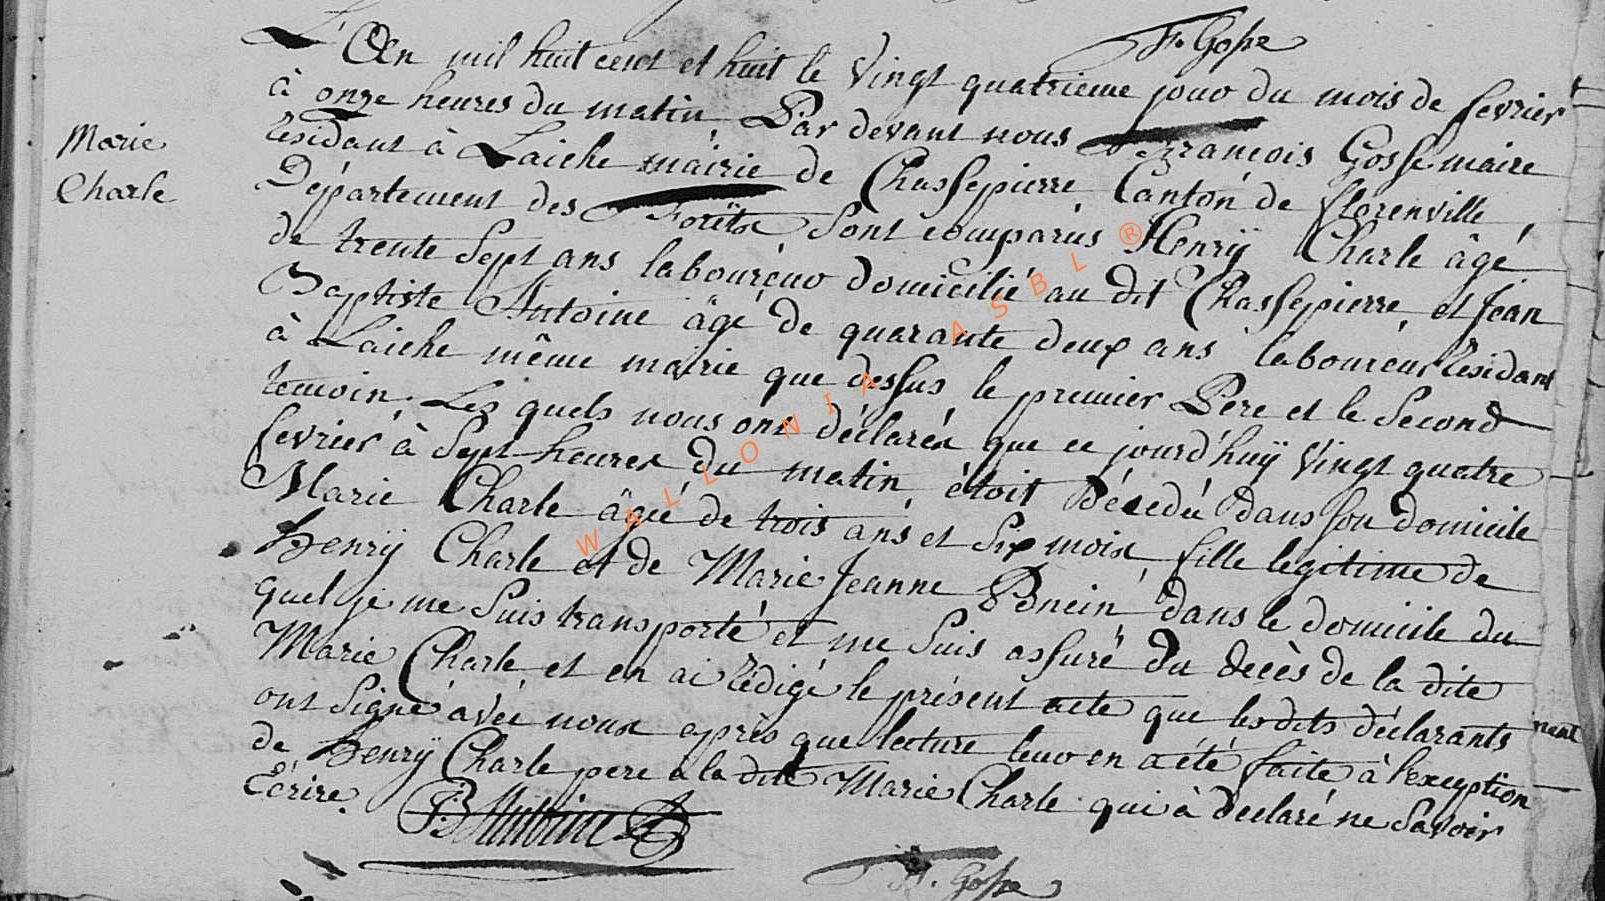 F. Gosse
L'an mil huit cent et huit le vingt quatrieme jour du mois de fevrier
à onze heures du matin. Par devant nous François Gosse maire
Résidant à Laiche mairie de Chassepierre, Canton de florenville,
Département des Forêts, Sont comparus Henrÿ Charle âgé
de trente Sept ans laboureur domicilié au dit Chassepierre et Jean
Baptiste Antoine âgé de quarante deux ans laboureur Résidant
à Laiche même mairie que dessus le premier Pere et le Second
temoin. Les quels nous ont déclarés que ce jourd'huÿ vingt quatre
fevrier à Sept heures du matin, étoit Décédé dans son domicile
Marie Charle âgée de trois ans et Six mois, fille legitime de
Henrÿ Charle et de Marie Jeanne dans le domicile du
quel je me Suis transporté et me Suis assuré du decès de la dite
Marie Charle, et en ai Rédigé le présent acte que les dits déclarants
ont Signé avéc nous après que lecture leur en a été faite à l'exception
de Henrÿ Charle pere à la dite Marie Charle qui à declaré ne Savoir
Écrire.
Marie
Charle
JB Antoine
F. Gosse
WALLONIA ASBL ®